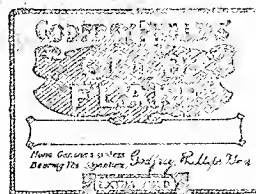 GODFREY PHILLIPS'
FLAKE
None Genuine unless
Bearing the Signature, Godfrey Phillips
EXTRA